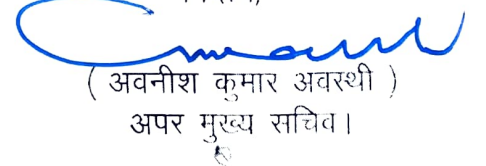 ( अवनीश कुमार अवस्थी )
अपर मुख्य सचिव।